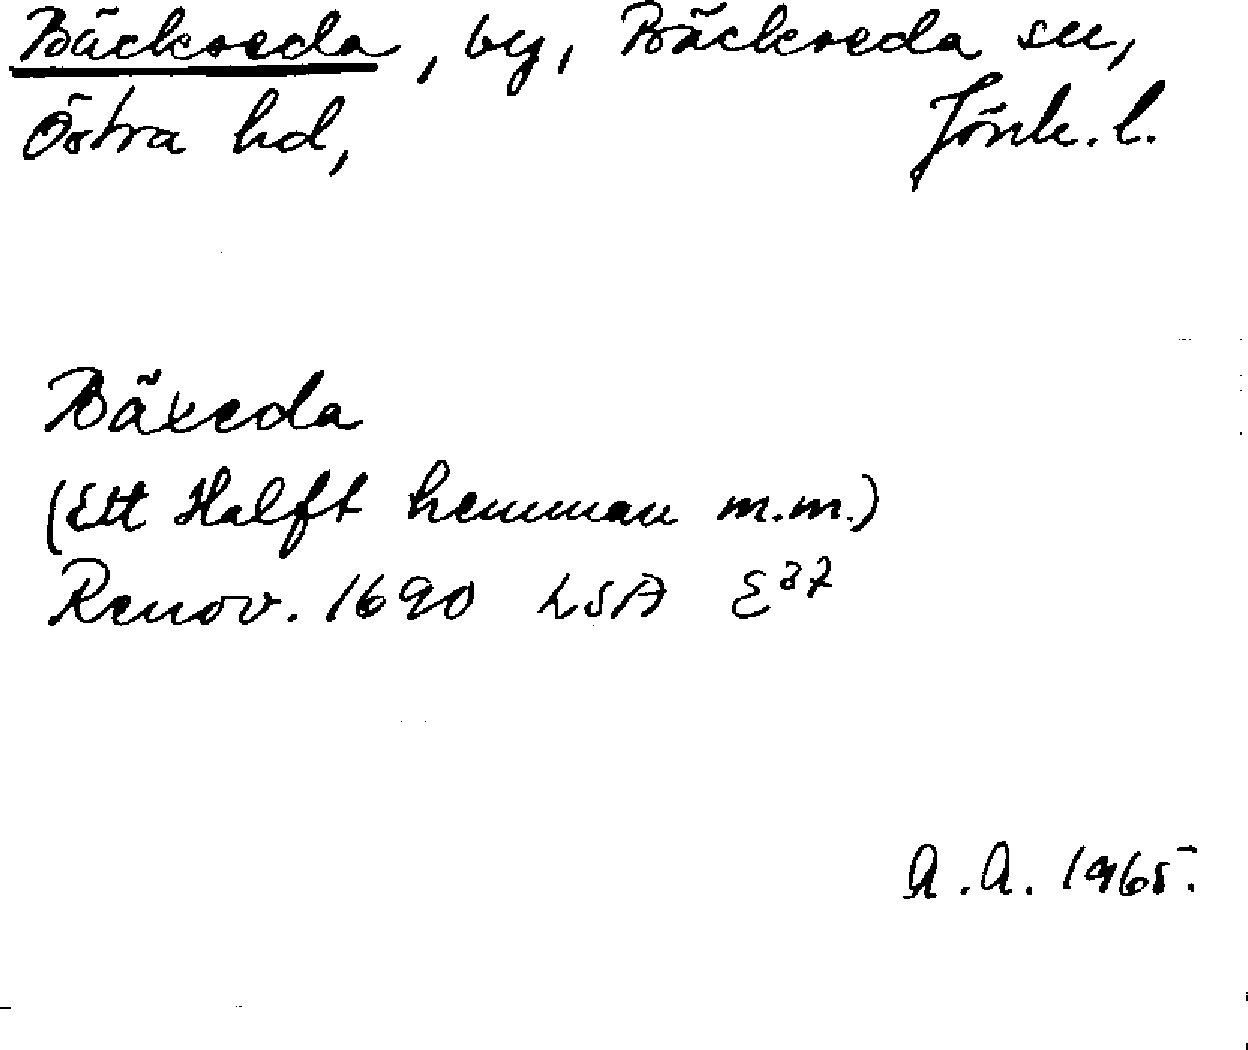 Bäckseda, by, Bäckseda sn,
Östra hd, Jönk. l.
Bäxeda
(Ett Halft hemman m.m.)
Renov. 1690 LSA E37
A.A. 1965.